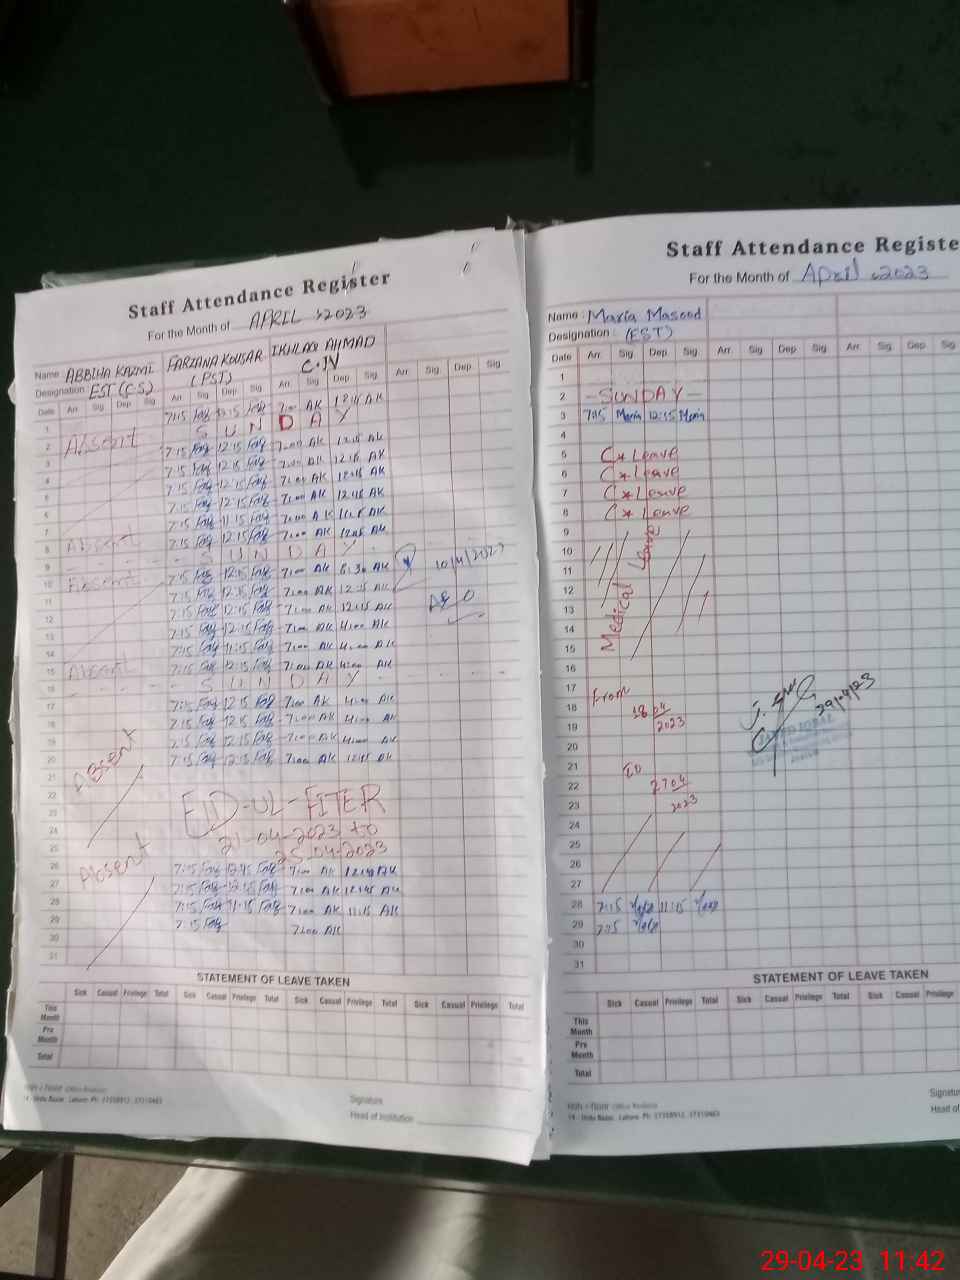 Staff Attendance Register
For the Month of APRIL 2023
Name ABBIHA KAZMI FARZANA KOUSAR IKHLAQ AHMAD
Designation EST (C.S) (PST) C.IV
Date Arr. Sig Dep. Sig Arr. Sig Dep Sig Arr. Sig Dep Sig Arr. Sig. Dep. Sig
1 7:15 12:15 7:00 AK 12:15 AK
2 S U N D A Y
Absent
3 7:15 12:15 7:00 AK 12:15 AK
4 7:15 12:15 7:00 AK 12:15 AK
5 7:15 12:15 7:00 AK 12:15 AK
6 7:15 12:15 7:00 AK 12:15 AK
7 7:15 11:15 7:00 AK
8 Absent 7:15 12:15 7:00 AK AK
9 S U N D A Y
10 Absent 7:15 12:15 7:00 AK 8:30 AK 10/4/2023
11 7:15 12:15 7:00 AK 12:15 AK
12 7:15 12:15 7:00 AK 12:15 AK
13 7:15 12:15 7:00 AK 4:00 AK
14 7:15 11:15 7:00 AK 4:00 AK
15 Absent 7:15 12:15 7:00 AK 4:00 AK
16 S U N D A Y
17 7:15 12:15 7:00 AK 4:00 AK
18 7:15 12:15 7:00 AK 4:00 AK
19 7:15 12:15 7:00 AK 4:00 AK
20 7:15 12:15 7:00 AK 12:15 AK
21
Absent
22
23 EID-UL-FITER
24 21-04-2023 to
25 25-04-2023
Absent
26 7:15 12:45 7:00 AK 12:45 AK
27 7:15 12:45 7:00 AK 12:45 AK
28 7:15 11:15 7:00 AK 11:15 AK
29 7:15 7:00 AK
30
31
STATEMENT OF LEAVE TAKEN
Sick Casual Privilege Total Sick Casual Privilege Total Sick Casual Privilege Total Sick Casual Privilege Total
This Month
Pre Month
Total
14 - Urdu Bazar, Lahore. Ph: 37358912, 37310463
Signature
Head of Institution
Staff Attendance Registe
For the Month of April 2023
Name : Maria Masood
Designation : (EST)
Date Arr. Sig Dep. Sig. Arr. Sig. Dep Sig Arr. Sig.
1
2 - SUNDAY -
3 7:15 Maria 12:15 Maria
4
5 C * Leave
6 C * Leave
7 C * Leave
8 C * Leave
9
10
11
12
13
14
15
Medical Leave
16
17 From
18 18 04
19 2023
20
21 To
22 27 04
23 2023
24
25
26
27
28 7:15 11:15
29 7:15
30
31
29/04/23
JAVED IQBAL
STATEMENT OF LEAVE TAKEN
Sick Casual Privilege Total Sick Casual Privilege Total Sick Casual Privilege
This Month
Pre Month
Total
14 - Urdu Bazar, Lahore. Ph: 37358912, 37310463
Signatu
Head of
29-04-23 11:42